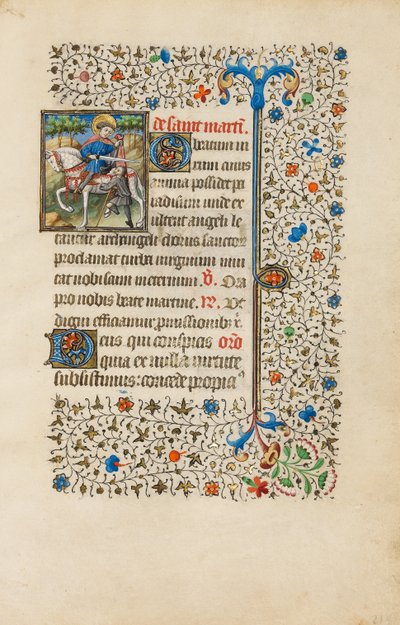 de saint marti.
O beatum vi
rum cuius
anima possidet pa
radisum unde ex
ultent angeli le
tantur archangeli chorus sanctor
proclamat turba virginum inui
tat nobiscum in eternum V. Ora
pro nobis beate martine. R. Vt
digni efficiamur pmissionibus x.
Deus qui conspicis Oro
quia ex nulla virtute
subsistimus: concede propicius